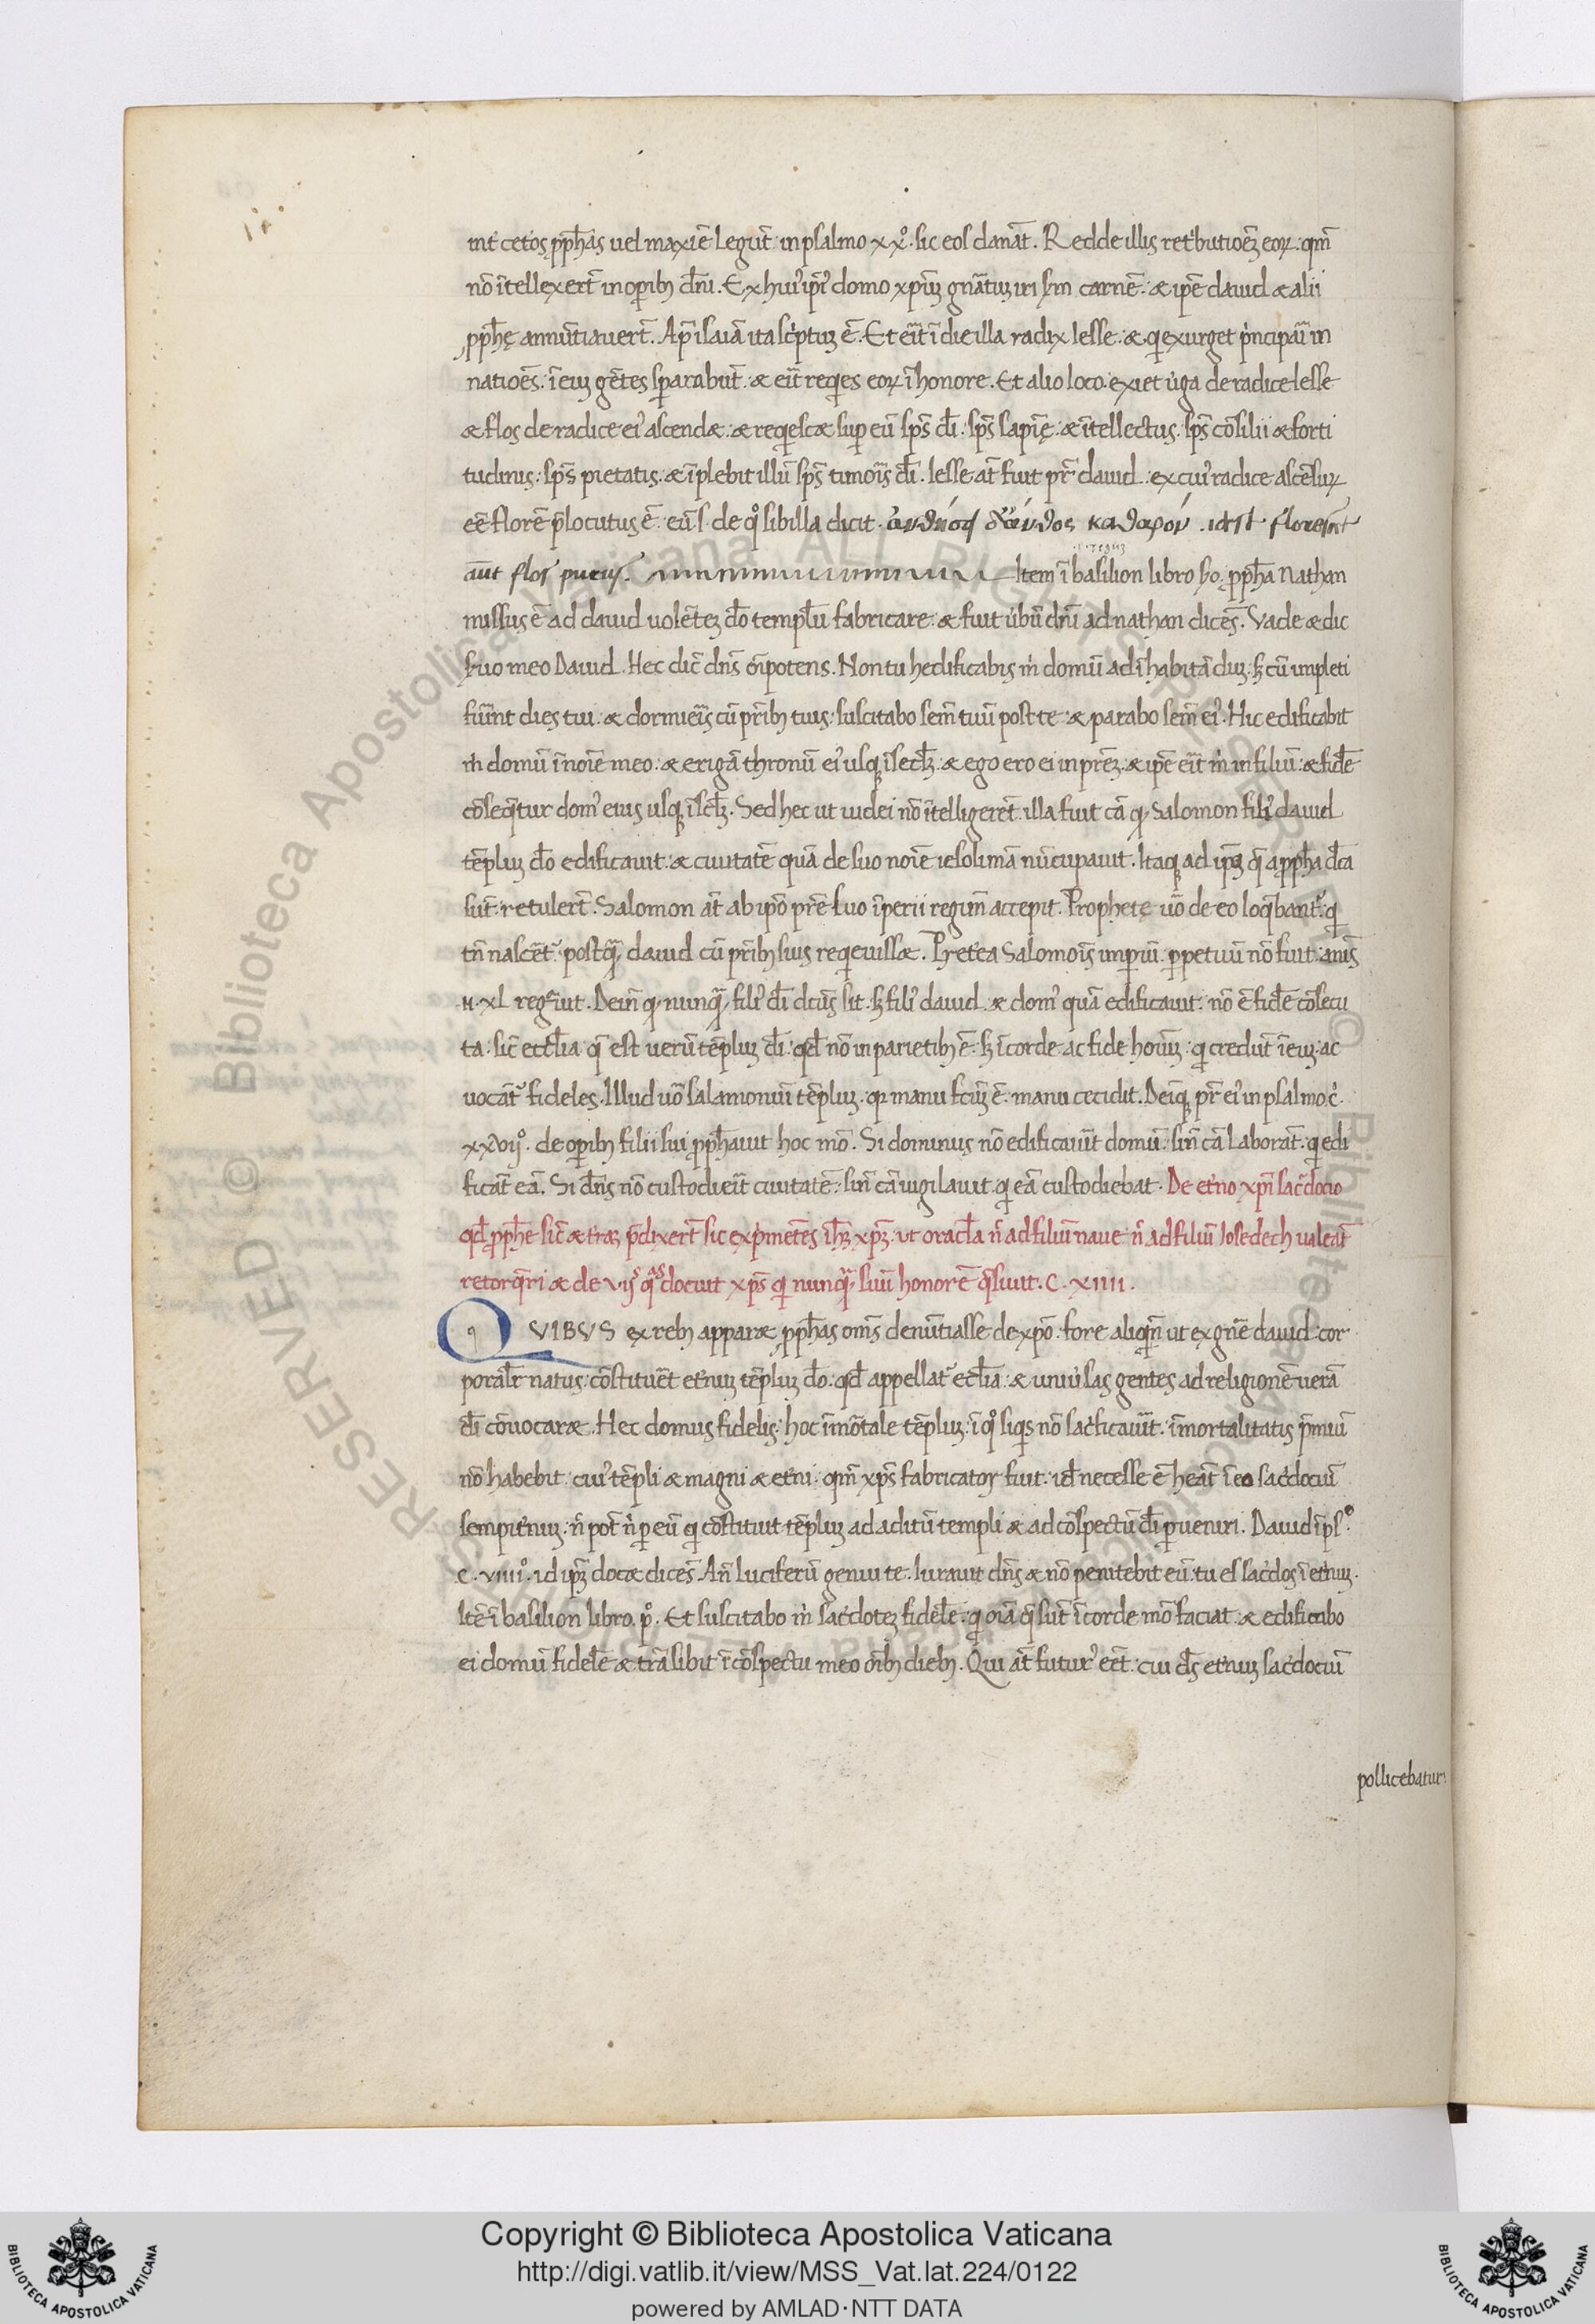 int̄ cetos ꝓph̄as uel maxīe legūt. in psalmo xxº. sic eos dānat. Redde illis ret'butiōez eoꝝ. qm̄
nō ītellexert̄ in oꝑibꝫ dn̄i. Ex hui' iꝑi' domo xpm̄ gn̄atuꝫ iri sm̄ carnē. & ip̄e dauid & alii
ꝓph̄ę annūtiauert̄. Aṗ isaiā ita scͥptuꝫ ē. Et eit̄ ī die illa radix Iesse. & qͥ exurget pͥncipaī in
natiōes. ī euꝫ gētes sꝑarabūt. & eit̄ reqͥes eoꝝ ī honore. Et alio loco. exiet ùga de radice Iesse
& flos de radice ei' ascend&. & reqͥesc& suꝑ eū sp̄s dī. sp̄s sapīę. & ītellectus. sp̄s cōsilii & forti
tudinis. sp̄s pietatis. & īplebit illū sp̄s timoīs dī. Iesse at̄ fuit pr̄ dauid. ex cui' radice ascēsuꝝ
eē florē p̄locutus ē. eū s. de qͦ sibilla dicit. ἀνθήσει δ' ἄνθος καθαρόν . idest florescet
aūt flos purus. Item ī basilion libro sͦo. ꝓph̄a Nathan
missus ē ad dauid uolētez dō templū fabricare. & fuit ùbū dn̄i ad nathan dicēs. Vade & dic
suo meo Dauid. Hec dic̄ dn̄s oīpotens. Non tu hedificabis m̍ domū ad īhabitādū. sꝫ cū impleti
fuīnt dies tui. & dormieīs cū pr̄ibꝫ tuis. suscitabo sem̄ tuū post te. & parabo sem̄ ei'. Hic edificabit
m̍ domū ī noīe meo. & erigā thronū ei' usqꝫ ī secl̄ꝫ. & ego ero ei in pr̄eꝫ. & ip̄e eit̄ m̍ in filiū. & fidē
cōseq̄tur dom' eius usqꝫ ī scl̄ꝫ. Sed hec ut iudei nō ītelligerēt. illa fuit cā qꝫ Salomon fili' dauid
tēpluꝫ dō edificauit. & ciuitatē quā de suo noīe iesolimā nūcupauit. Itaqꝫ ad ip̄ꝫ q̄ a ꝓph̄a dc̄a
sūt. retulert̄. Salomon at̄ ab ipō pr̄e suo īperii regim̄ accepit. Prophetę uō de eo loq̄bant'. qͥ
tn̄ nascēt'. postqꝫ dauid cū pr̄ibꝫ suis reqͥeuiss&. Pret'ea Salomoīs imꝑiū ꝑpetuū nō fuit. anīs
n. xl regͣuit. Dein̄ qꝫ nunqꝫ fili' dī dcūs sit. sꝫ fili' dauid. & dom' quā edificauit. nō ē fidē cōsecu
ta. sic̄ eccl̄ia q̄ est uerū tēpluꝫ dī. qd̄ nō in parietibꝫ ē. sꝫ ī corde ac fide hoīuꝫ. qͥ credūt ī euꝫ. ac
uocāt' fideles. Illud uō salamoniū tēpluꝫ. qꝛ manu fcūꝫ ē. manu cecidit. Deīqꝫ pr̄ ei' in psalmo c̍.
xxvijº. de oꝑibꝫ filii sui ꝓph̄auit hoc mō. Si dominus nō edificauit̄ domū. sin̄ cā laborāt. qͥ edi
ficāt eā. Si dn̄s nō custodieit̄ ciuitatē. sin̄ cā uigilauit. qͥ eā custodiebat. De et'no xpi sac̄docio
qd̄ ꝓph̄e sic̄ & t'raꝫ p̄dixert̄ sic exp̍metēs ih̄ꝫ xp̄ꝫ. ut oracl̄a n̄ ad filiū naue n̄ ad filiū Iosedech ualeāt
retorq̄ri & de vijs qͣs docuit xp̄s qͥ nunqꝫ suū honorē q̄siuit. C. xiiii.
QVIBVS ex rebꝫ appar& ꝓph̄as om̄s denūtiasse de xpō. fore aliqn̄ ut ex gn̄e dauid cor
poral̄r natus. cōstituēt et'nuꝫ tēpluꝫ dō. qd̄ appellat' eccl̄ia. & uniùsas gentes ad religionē uerā
dī cōuocar&. Hec domus fidelis. hoc īmōtale tēpluꝫ. ī qͦ siqͥs nō sac̍ficauīt. īmortalitatis p̄miū
nō habebit. cui' tēpli & magni & et'ni. qm̄ xp̄s fabricator fuit. id̄ necesse ē heāt ī eo sac̍dociū
sempit'nuꝫ. n̄ pot̄ n̄ ꝑ eū qͥ cōstituit tēpluꝫ ad aditū templi & ad cōspectū dī ꝑueniri. Dauid ī psͦ.
c. viiiiº. id ip̄ꝫ doc& dicēs. An̄ luciferū genui te. Iurauit dn̄s & nō penitebit eū. tu es sac̍dos ī et'nuꝫ.
Itē ī basilion libro. pº. Et suscitabo m̍ sac̍doteꝫ fidēle. qͥ oīa q̄ sūt ī corde mō faciat. & edificabo
ei domū fidelē & trāsibit ī cōspectu meo oībꝫ diebꝫ. Qui at̄ futur' eēt. cui dꝰs et'nuꝫ sac̍dociū
pollicebatur
Copyright © Biblioteca Apostolica Vaticana
http://digi.vatlib.it/view/MSS_Vat.lat.224/0122
powered by AMLAD·NTT DATA